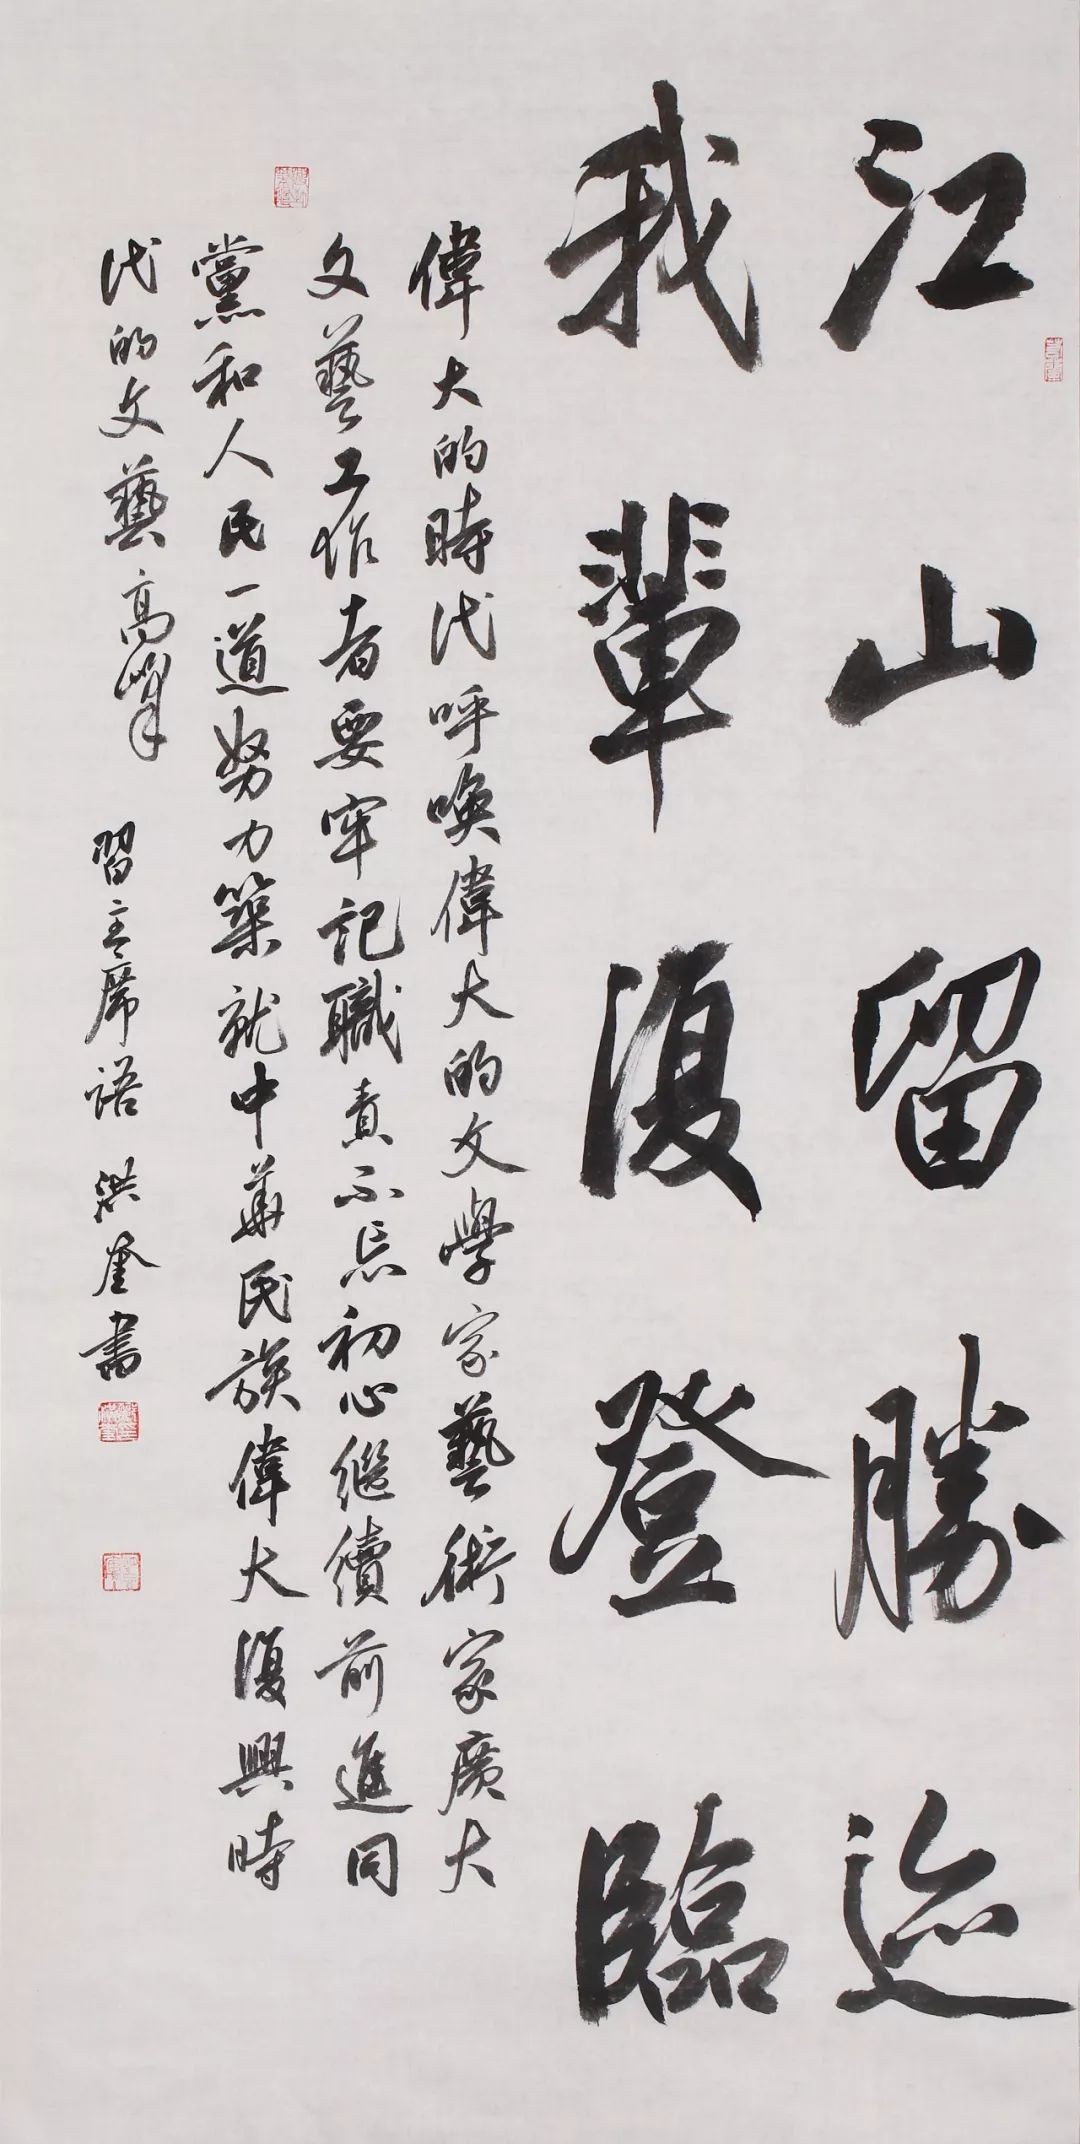 江山留勝迹
我輩復登臨
偉大的時代呼喚偉大的文學家藝術家廣大
文藝工作者要牢記職責不忘初心繼續前進同
黨和人民一道努力築就中華民族偉大復興時
代的文藝高峰
習主席語 洪奎書